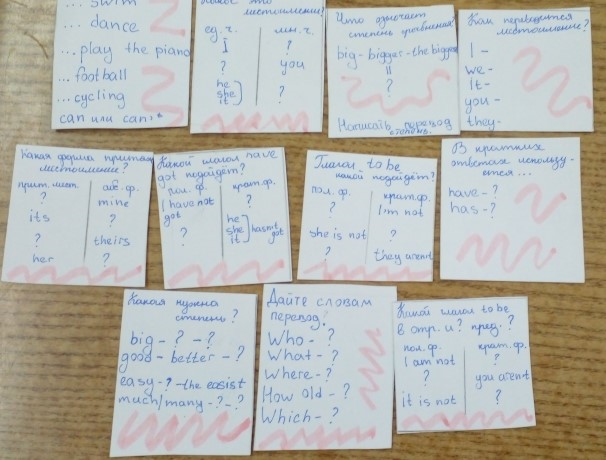 ... swim
... dance
... play the piano
... football
... cycling
can или can't
Какое это
местоимение?
ед. ч. мн. ч.
I ?
? you
he
she
it
?
Что означает
степень сравнения?
big - bigger - the biggest
?
Написать перевод
Как переводится
местоимение?
I -
we -
It -
you -
they -
Какая форма притяж.
местоимение?
прит. мест. аб. ф.
? mine
its ?
? theirs
her ?
Какой глагол have
got подойдёт?
пол. ф. крат. ф.
I have not
got
?
?
he
she
it
hasn't
got
Глагол to be
какой подойдёт?
пол. ф. крат. ф.
? I'm not
she is not ?
? they aren't
В кратких
ответах использу-
ется ...
have - ?
has - ?
Какая нужна
степень?
big - ? - ?
good - better - ?
easy - ? - the easist
much/many - ? - ?
Дайте словам
перевод?
Who - ?
What - ?
Where - ?
How old - ?
Which - ?
Какой глагол to be
в отр. и ? пред. ?
пол. ф. крат. ф.
I am not ?
? you arent
it is not ?